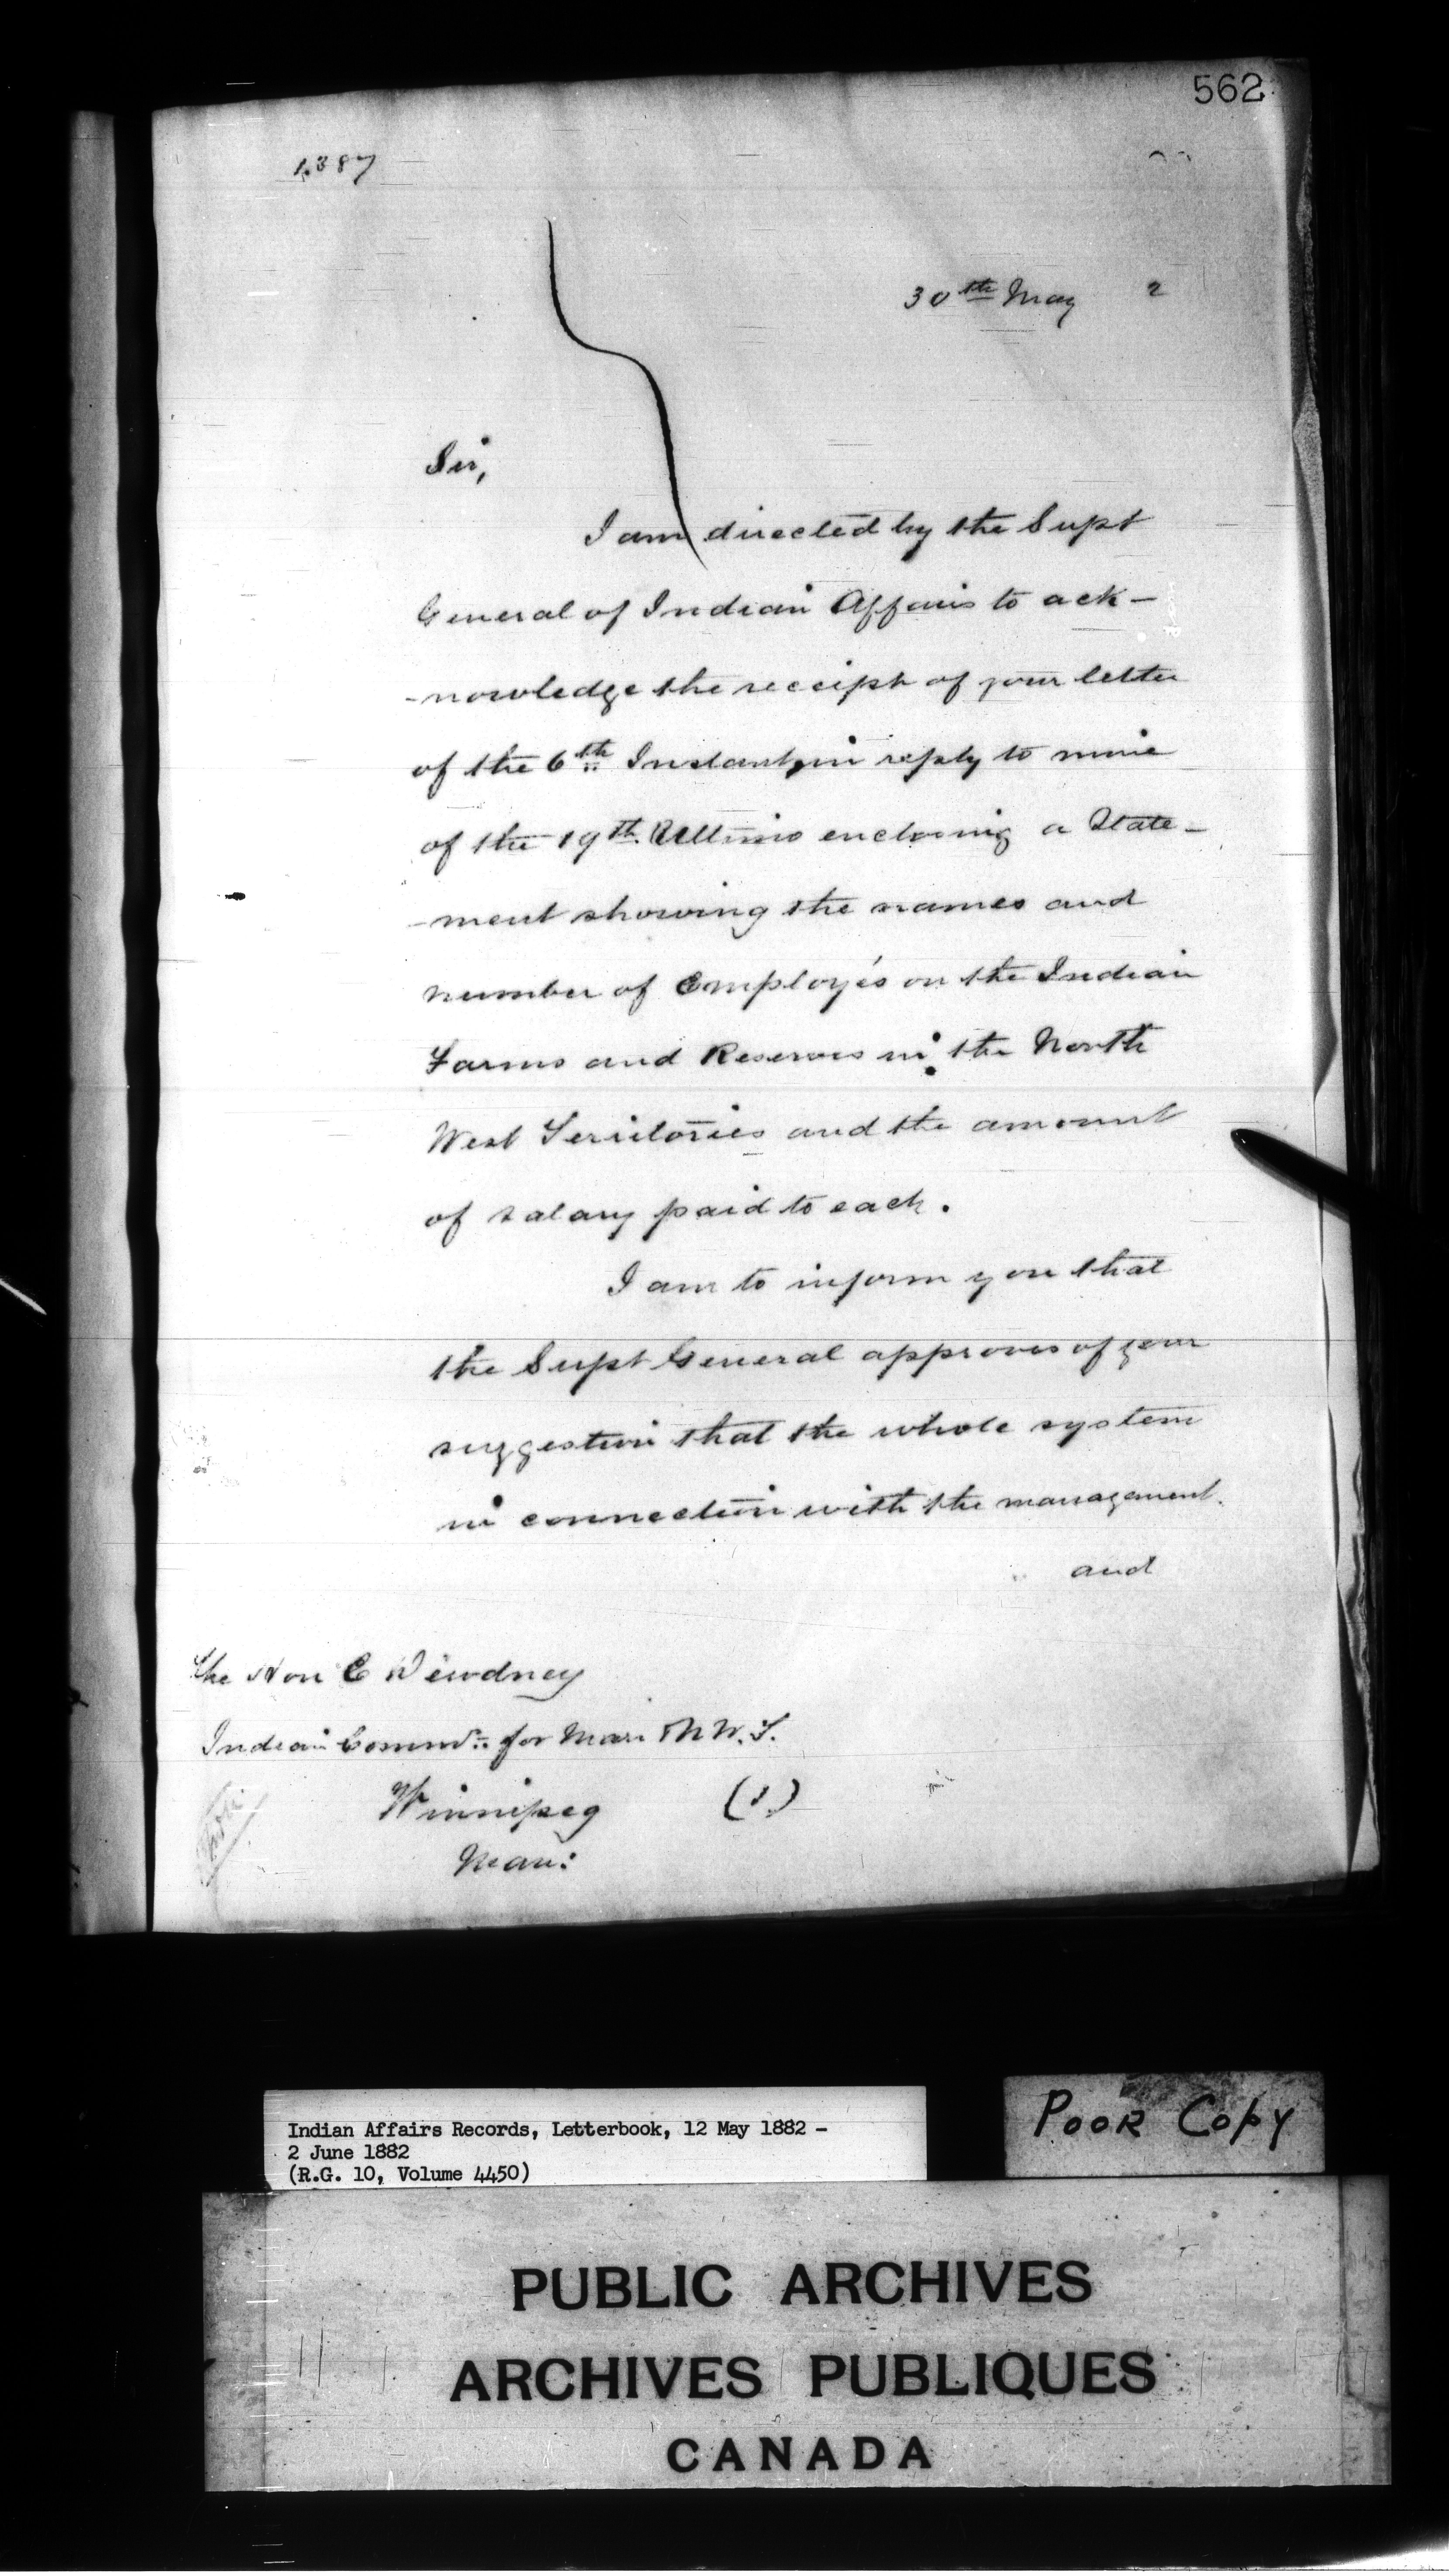 562
1,387
30th May 2
Sir,
I am directed by the Supt
General of Indian Affairs to ack-
-nowledge the receipt of your letter
of the 6th Instant, in reply to mine
of the 19th Ultimo enclosing a State-
-ment showing the names and
number of Employés on the Indian
Farms and Reserves in the North
West Territories and the amount
of salary paid to each.
I am to inform you that
the Supt General approves of your
suggestion that the whole system
in connection with the management
and
The Hon E Dewdney
Indian Commr. for Man: & N.W.T.
Winnipeg (1.)
Man:
Indian Affairs Records, Letterbook, 12 May 1882 -
2 June 1882
(R.G. 10, Volume 4450)
POOR COPY
PUBLIC ARCHIVES
ARCHIVES PUBLIQUES
CANADA